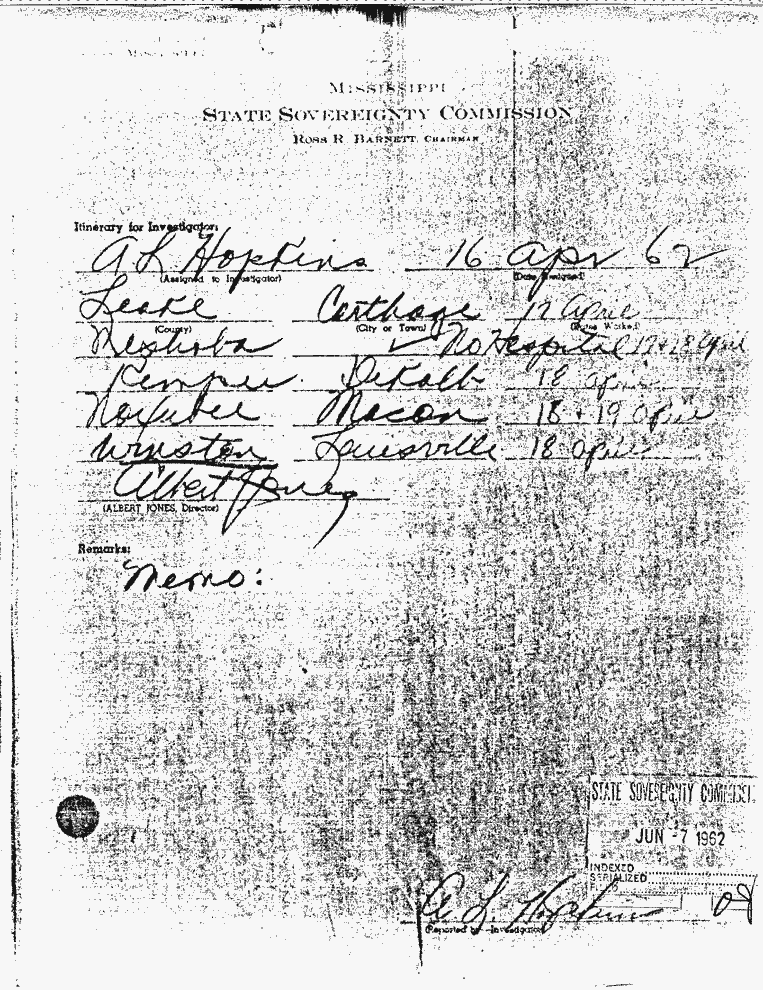 MISSISSIPPI
STATE SOVEREIGNTY COMMISSION
ROSS R. BARNETT, CHAIRMAN
Itinerary for Investigator:
A L Hopkins 16 Apr 62
(Assigned to Investigator) (Date Assigned)
Leake Carthage 17 April
(County) (City or Town) (Dates Worked)
Neshoba ✓ No Hospital 17 + 18 April
Kemper DeKalb 18 April
Noxubee Macon 18 + 19 April
Winston Louisville 18 April
Albert Jones
(ALBERT JONES, Director)
Remarks:
Memo:
STATE SOVEREIGNTY COMMISSI
JUN -7 1962
INDEXED
SERIALIZED
A. L. Hopkins
(Reported by—Investigator)